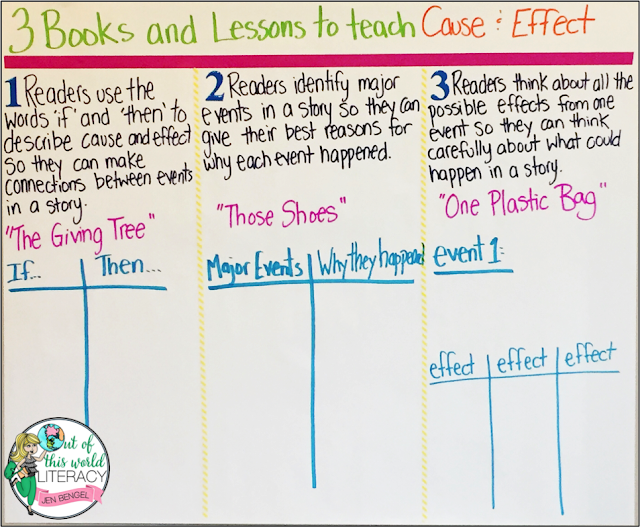 3 Books and Lessons to teach Cause & Effect
1 Readers use the
words 'if' and 'then' to
describe cause and effect
so they can make
connections between events
in a story.
"The Giving Tree"
If... Then...
2 Readers identify major
events in a story so they can
give their best reasons for
why each event happened.
"Those Shoes"
Major Events Why they happened
3 Readers think about all the
possible effects from one
event so they can think
carefully about what could
happen in a story.
"One Plastic Bag"
event 1:
effect effect effect
Out of
this world
LITERACY
JEN BENGEL